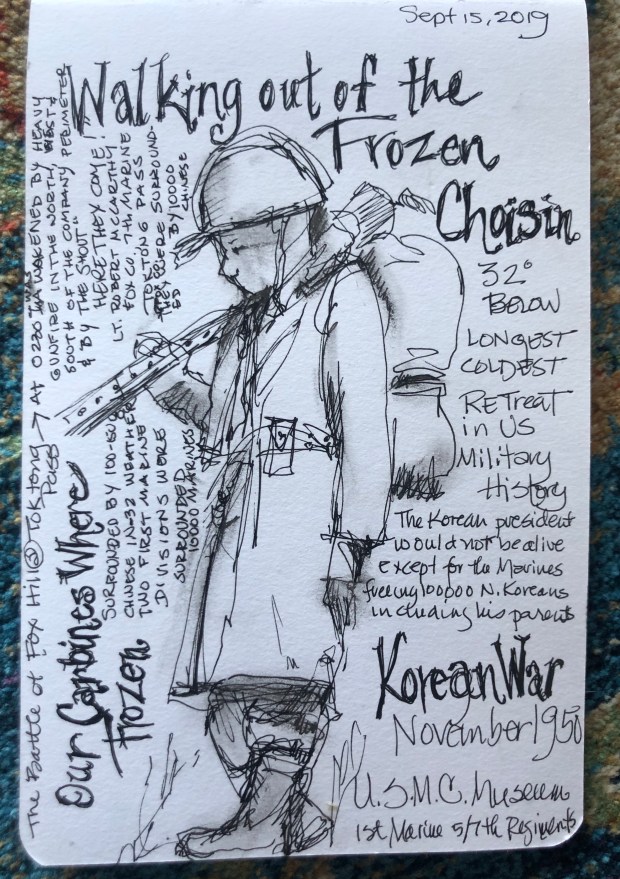 Sept 15, 2019
Walking out of the
Frozen
Choisin
32°
BELOW
LONGEST
COLDEST
ReTreat
in US
Military
History
The Korean president
would not be alive
except for the Marines
freeing 100,000 N. Koreans
including his parents
Korean War
November 1950
U.S.M.C. Museum
1st Marine 5/7th Regiments
The Battle of Fox Hill @ Toktong → AT 0230 I WAS AWAKENED BY HEAVY
Pass
GUNFIRE IN THE NORTH, WEST &
SOUTH OF THE COMPANY PERIMETER
& BY THE SHOUT "
HERE THEY COME!"
LT. ROBERT MCCARTHY
FOX CO. 7TH MARINE
TOKTONG PASS
THEY WERE SURROUND-
ED BY 10000
CHINESE
Our Carbines Where
Frozen
SURROUNDED BY
CHINESE IN -32 WEATHER
TWO FIRST MARINE
DIVISIONS WERE
SURROUNDED
10000 MARINES